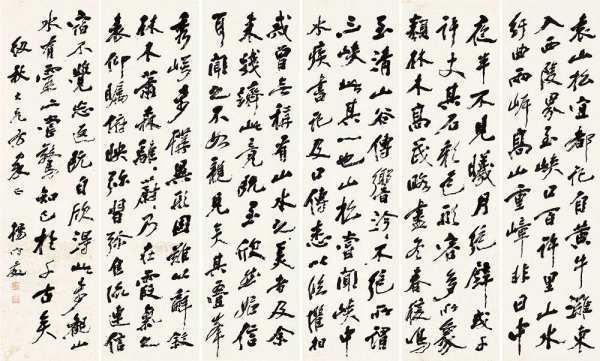 袁山松宜都記自黃牛灘東
入西陵界至峽口百許里山水
紆曲而兩岸高山重嶂非日中
夜半不見曦月絕壁或千
許丈其石彩色形容多所象
類林木高茂略盡冬春猨鳴
至清山谷傳響泠泠不絕所謂
三峽此其一也山松嘗聞峽中
水疾書記及口傳悉以臨懼相
戒曾無稱有山水之美者及余
來踐躋此竟既至欣然始信
耳聞之不如親見矣其疊峯
秀崿奇構異形固難以辭敘
林木蕭森離離蔚蔚乃在霞氣之
表仰矚俯映彌習彌佳流連信
宿不覺忘返既自欣得此奇觀山
水有靈亦當驚知己於千古矣
大兄方家正 楊守敬